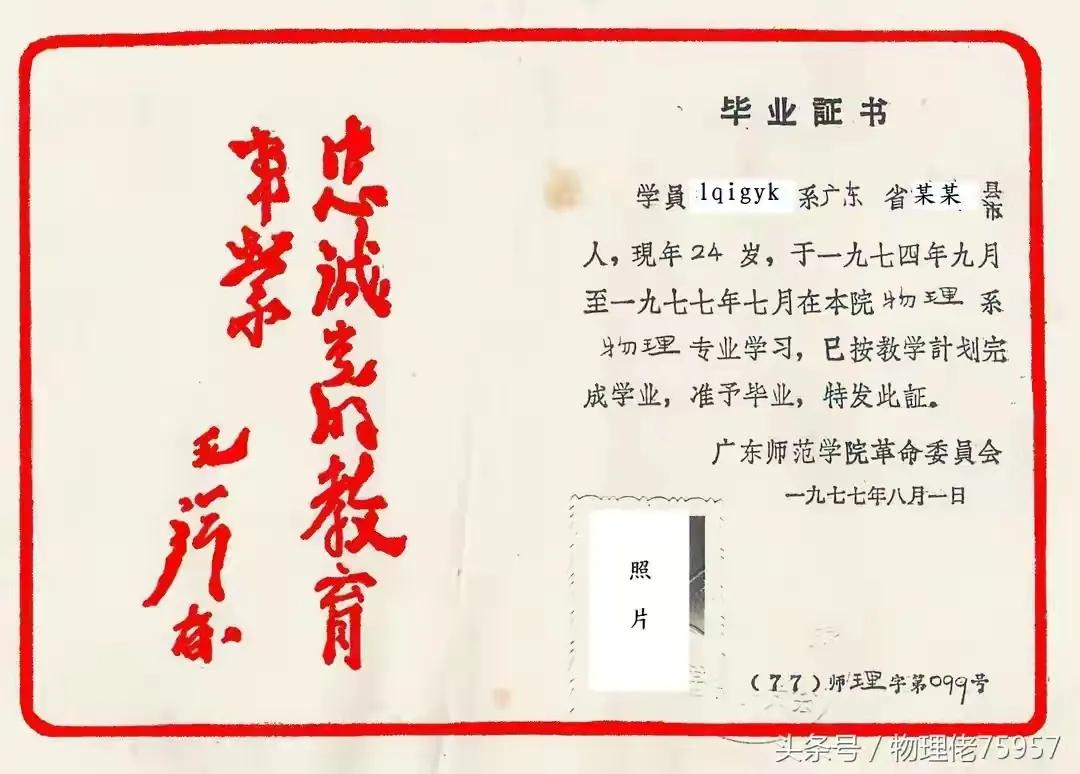 忠诚党的教育
事業
毛泽东
毕业証书
学員 lqigyk 系广东 省某某 县市
人，現年24岁，于一九七四年九月
至一九七七年七月在本院物理系
物理专业学习，已按教学計划完
成学业，准予毕业，特发此証。
广东师范学院革命委員会
一九七七年八月一日
照
片
(77)师理字第099号
头条号 / 物理佬75957